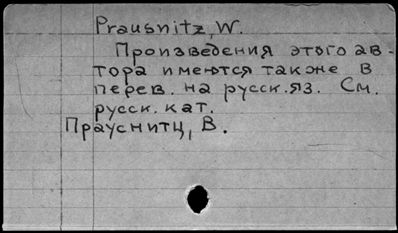 Prausnitz, W.
Произведения этого ав-
тора имеются также в
перев. на русск. яз. См.
русск. кат.
Прауснитц, В.